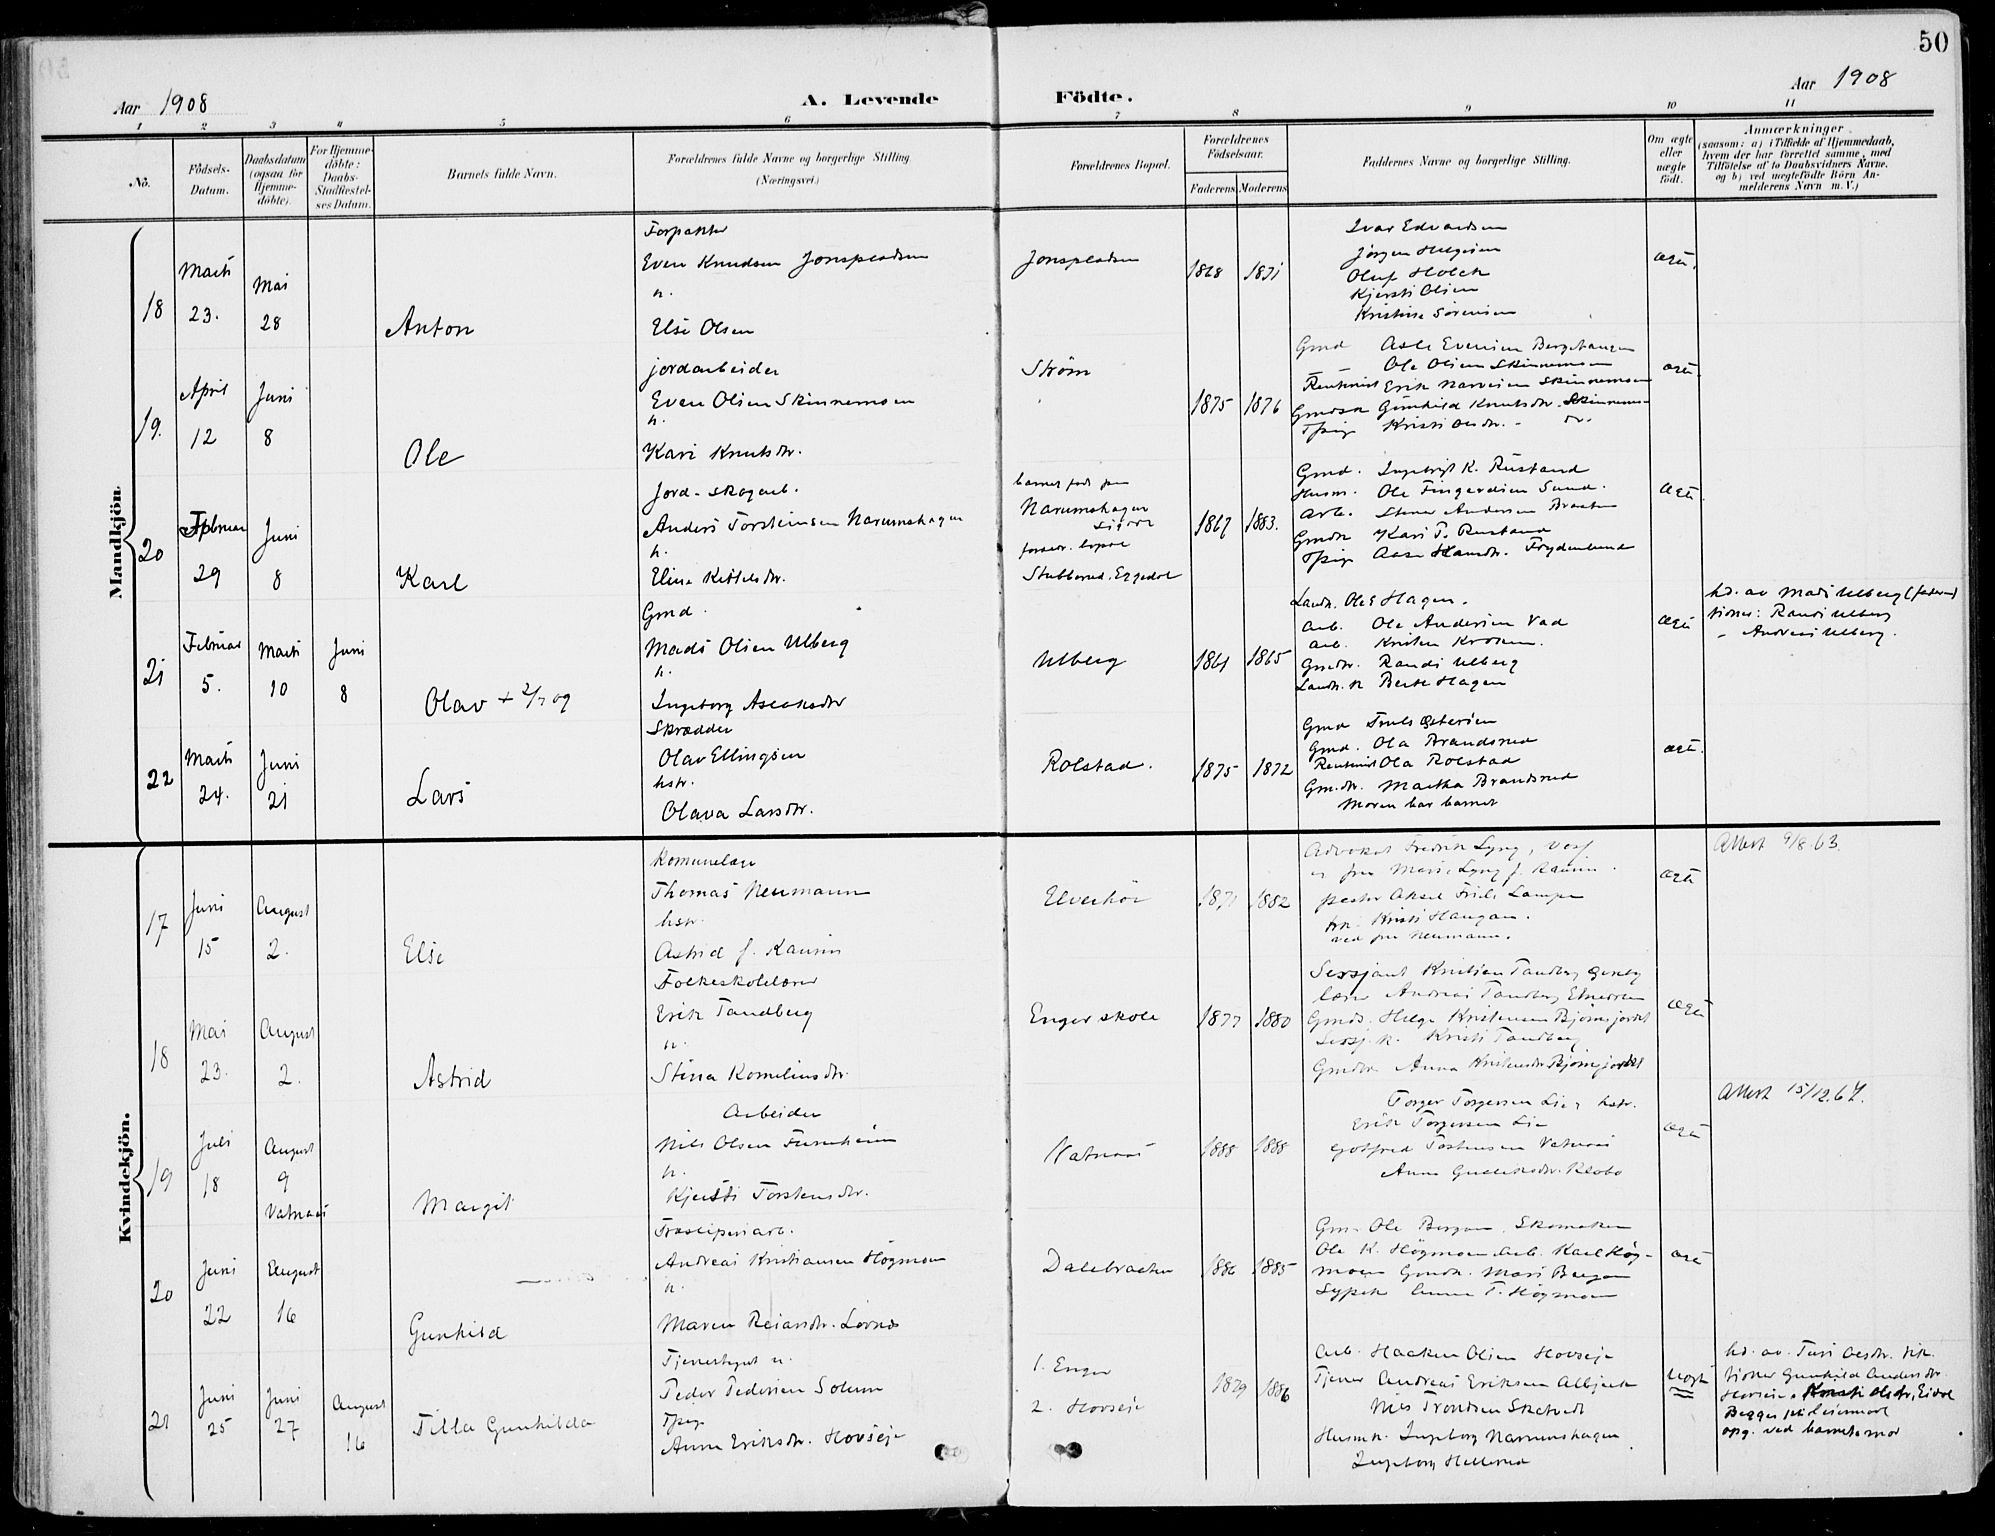 50
Aar 1908
A. Levende
Födte.
Aar 1908
1 2 3 4 5 6 7 8 9 10 11
No.
Fødsels-Datum.
Daabsdatum (ogsaa for Hjemmedöbte).
For Hjemmedöbte: Daabs-Stadfæstelses Datum.
Barnets fulde Navn.
Forældrenes fulde Navne og borgerlige Stilling. (Næringsvei.)
Forældrenes Bopæl.
Forældrenes Födselsaar.
Faderens Moderens
Faddernes Navne og borgerlige Stilling.
Om ægte eller uægte födt.
Anmærkninger
(saasom: a) i Tilfælde af Hjemmedaab,
hvem der har forrettet samme, med
Tilföielse af to Daabsvidners Navne.
og b) ved uægtefödte Börn Anmelderens Navn m. V.)
Mandkjön
18
Marts 23.
Mai 28
Anton
Forpakter
Even Knudsen Jonspladsen
h.
Else Olsen
Jonspladsen
1868 1871
Ivar Edvardsen
Jørgen Helgesen
Oluf Holck
Kjersti Olsen
Kristine Sørensen
ægte.
19.
April 12
Juni 8
Ole
jordarbeider
Even Olsen Skinnemoen
h.
Kari Knutsdtr.
Strøm
1875 1876
Gmd Asle Evensen Berghaugen
Ole Olsen Skinnemoen
Erik Narvesen Skinnemoen
Gunhild Knutsdtr. Skinnemoen
Kristi Olsdtr.
ægte.
20
Februar 29
Juni 8
Karl
Jord- skogarb.
Anders Torsteinsen Narumshagen
h.
Eline Kittelsdtr.
Narumshagen
Stubberud, Eggedal
1867 1883.
Gmd. Ingebrigt K. Rustand
Husm. Ole Fingerdsen Sund.
Arb. Stener Andersen Braaten
Kari T. Rustand
Frydenlund
ægte
21
Februar 5.
Marts 10
Juni 8
Olav + 2/7 09
Gmd.
Mads Olsen Ulberg
h.
Ingeborg Aslaksdtr
Ulberg
1861 1865
Landh. Ole E Hagen.
Arb. Ole Andersen Vad
Arb. Kristen Kroken.
Gmdk. Randi Ulberg
Landh. k Berte Hagen
ægte
hd. av Mads Ulberg (faderen)
vitner: Randi Ulberg
" Andreas Ulberg.
22
Marts 24.
Juni 21
Lars
Skrædder
Olav Ellingsen
hstr.
Olava Larsdtr.
Rolstad.
1875 1872
Gmd Truls Østensen
Gmd. Ola Brandsrud
Ola Rolstad
Gmdk. Martha Brandsrud
Moren bar barnet
ægte.
Kvindekjön.
17
Juni 15
August 2.
Else
Komunelæge
Thomas Neumann
hstr.
Astrid f. Kaurin
Elverhöi
1871 1882
Advokat Fredrik Lyng, Voss
og fru Marie Lyng f. Kaurin.
Kristi Haugan.
ved fru Neumann.
ægte
Attest 9/8.63.
18
Mai 23.
August 2.
Astrid
Folkeskolelærer
Erik Tandberg
h.
Stina Kornelinsdtr.
Enger skole
1877 1880
Sersjant Kristian Tandberg
lærer Andreas Tandberg Etnedalen
Gmds. Helge Kristensen Bjørnsjordet
Sersj. k. Kristi Tandberg
Gmdk Anna Kristensdtr Bjørnsjordet
ægte
19
Juli 18
August 9
Vatnaas
Margit
Arbeider
Nils Olsen Furuheim
h.
Kjersti Torstensdtr.
Vatnaas
1888 1888
Torger Torgersen Lie, hstr.
Erik Torgersen Lie
Gotfred Torstensen Vatnaas
Anna Gulleiksdtr. Klobo
ægte
Attest 15/12.67.
20
Juni 22
August 16
Gunhild
Træsliperiarb.
Andreas Kristiansen Högmoen
h.
Maren Reiarsdtr. Lövnes
Dalebraaten
1886 1885
Gm. Ole Bergan. Skomaker
Ole K. Högmoen Arb. Karl Högmoen
Gmdk. Mari Bergan
Sypik Anna T. Högmoen
ægte
21
Juni 25
Juni 27
August 16
Tilla Gunhilda
Tjenestegut u.
Peder Pedersen Solum
Tpig
Anna Eriksdtr. Hovseje
1. Enger
2. Hovseje
1879 1886
Arb. Haaken Olsen Hovseje
Tjener Andreas Eriksen Albjerk
Nils Trondsen Skatvedt
Husmk. Ingeborg Narumshagen
Ingeborg Hellerud
uægte
hd. av. Turi Olsdtr. Vik.
vitner Gunhild Andersdtr
Hovseie, Kristi Olsdtr, Eidal
opg. ved barnets mor